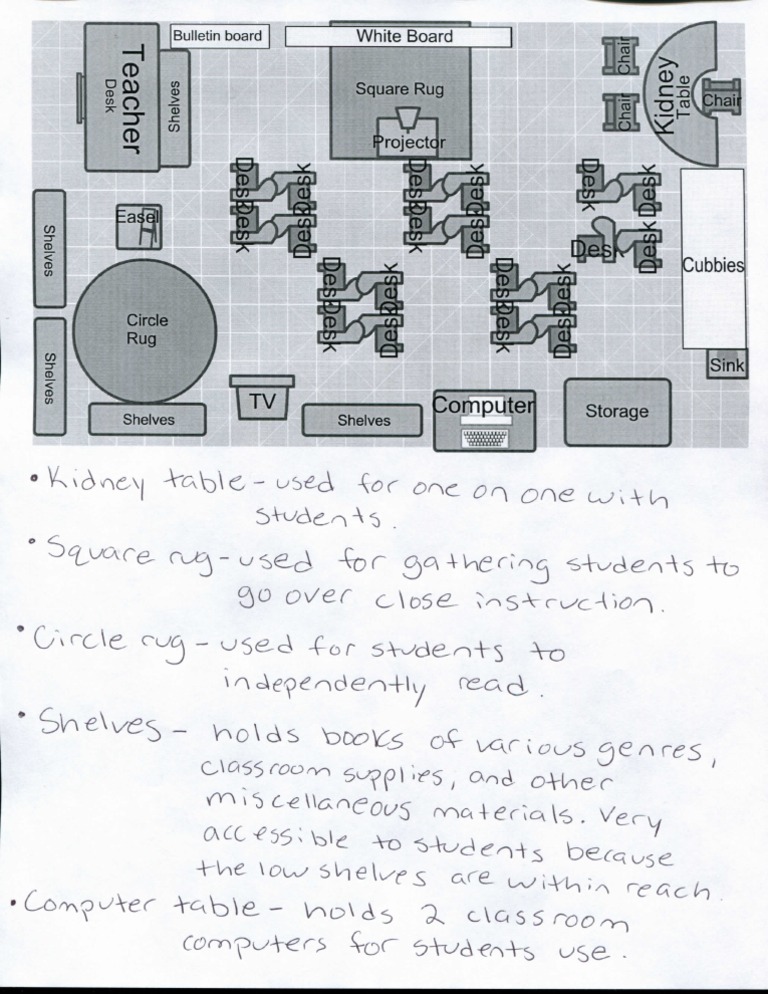 Bulletin board
White Board
Teacher
Desk
Shelves
Square Rug
Projector
Chair
Chair
Kidney
Table
Chair
Desk
Desk
Desk
Desk
Desk
Desk
Desk
Desk
Desk
Desk
Desk
Desk
Easel
Shelves
Cubbies
Desk
Desk
Desk
Desk
Desk
Desk
Desk
Desk
Circle
Rug
Shelves
Sink
TV
Shelves
Shelves
Computer
Storage
• Kidney table - used for one on one with
students.
• Square rug - used for gathering students to
go over close instruction.
• Circle rug - used for students to
independently read.
• Shelves - holds books of various genres,
classroom supplies, and other
miscellaneous materials. Very
accessible to students because
the low shelves are within reach.
• Computer table - holds 2 classroom
computers for students use.